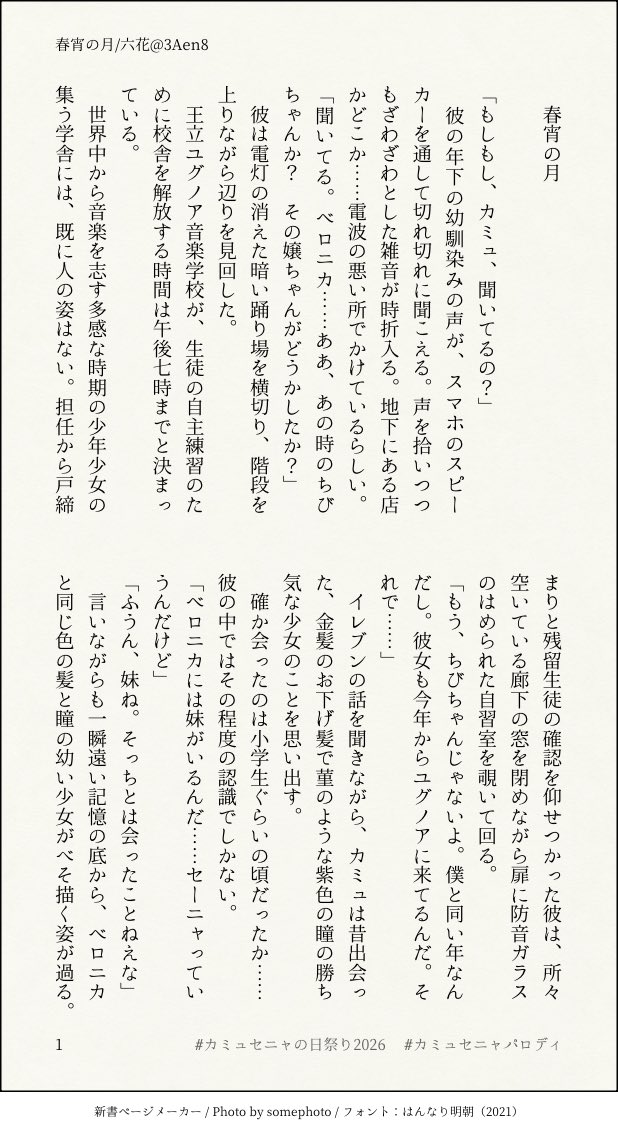 春宵の月/六花@3Aen8
春宵の月
「もしもし、カミュ、聞いてるの？」
　彼の年下の幼馴染みの声が、スマホのスピー
カーを通して切れ切れに聞こえる。声を拾いつつ
もざわざわとした雑音が時折入る。地下にある店
かどこか……電波の悪い所でかけているらしい。
「聞いてる。ベロニカ……ああ、あの時のちび
ちゃんか？　その嬢ちゃんがどうかしたか？」
　彼は電灯の消えた暗い踊り場を横切り、階段を
上りながら辺りを見回した。
　王立ユグノア音楽学校が、生徒の自主練習のた
めに校舎を解放する時間は午後七時までと決まっ
ている。
　世界中から音楽を志す多感な時期の少年少女の
集う学舎には、既に人の姿はない。担任から戸締
まりと残留生徒の確認を仰せつかった彼は、所々
空いている廊下の窓を閉めながら扉に防音ガラス
のはめられた自習室を覗いて回る。
「もう、ちびちゃんじゃないよ。僕と同い年なん
だし。彼女も今年からユグノアに来てるんだ。そ
れで……」
　イレブンの話を聞きながら、カミュは昔出会っ
た、金髪のお下げ髪で菫のような紫色の瞳の勝ち
気な少女のことを思い出す。
　確か会ったのは小学生ぐらいの頃だったか……
彼の中ではその程度の認識でしかない。
「ベロニカには妹がいるんだ……セーニャってい
うんだけど」
「ふうん、妹ね。そっちとは会ったことねえな」
　言いながらも一瞬遠い記憶の底から、ベロニカ
と同じ色の髪と瞳の幼い少女がべそ描く姿が過る。
1
#カミュセニャの日祭り2026　#カミュセニャパロディ
新書ページメーカー / Photo by somephoto / フォント：はんなり明朝（2021）